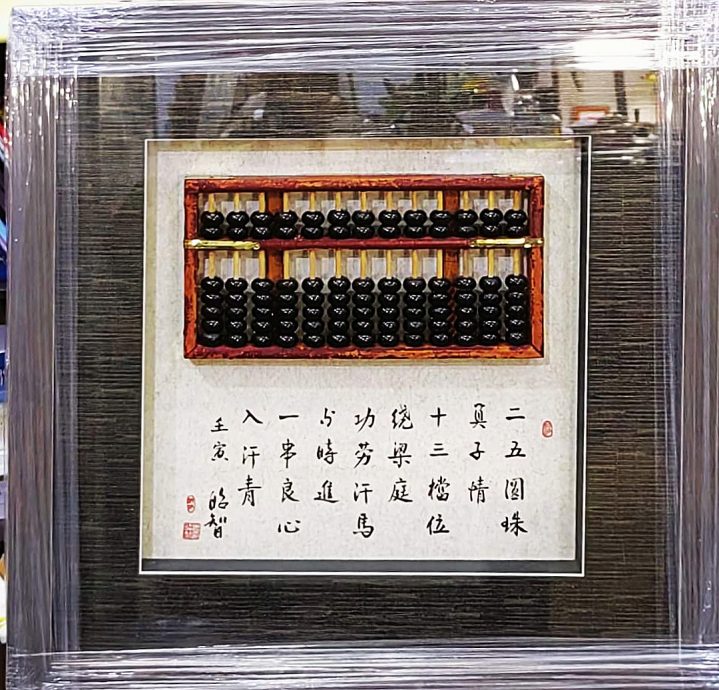 二五圆珠
真子情
十三檔位
绕梁庭
功劳汗馬
与時進
一串良心
入汗青
壬寅
智